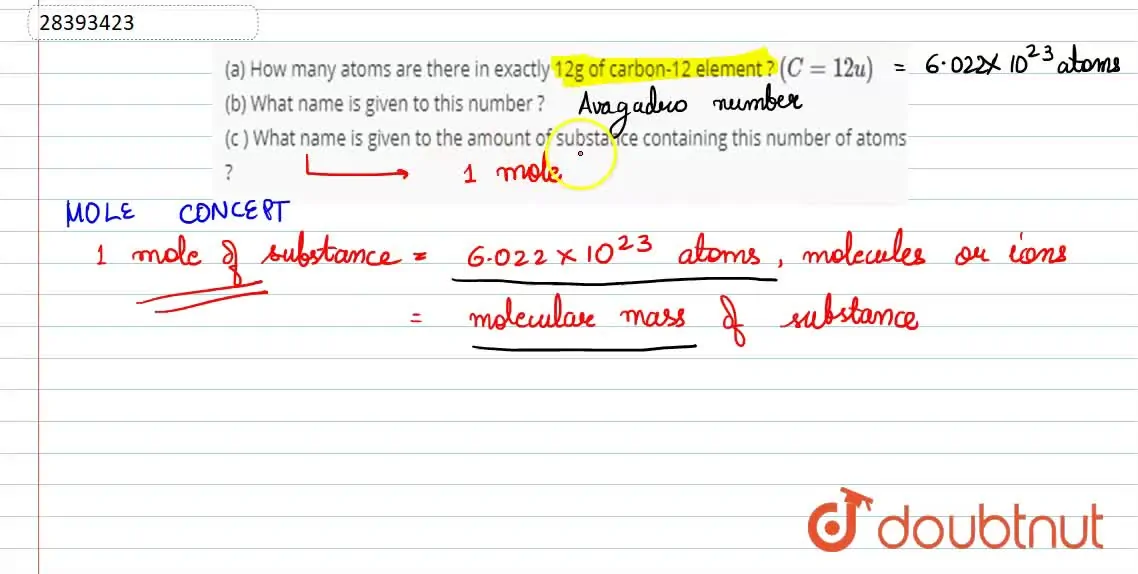 28393423
(a) How many atoms are there in exactly 12g of carbon-12 element ? (C = 12u) = 6.022 x 10^23 atoms
(b) What name is given to this number ? Avagadro number
(c ) What name is given to the amount of substance containing this number of atoms
? 1 mole
MOLE CONCEPT
1 mole of substance = 6.022 x 10^23 atoms, molecules or ions
= molecular mass of substance
doubtnut